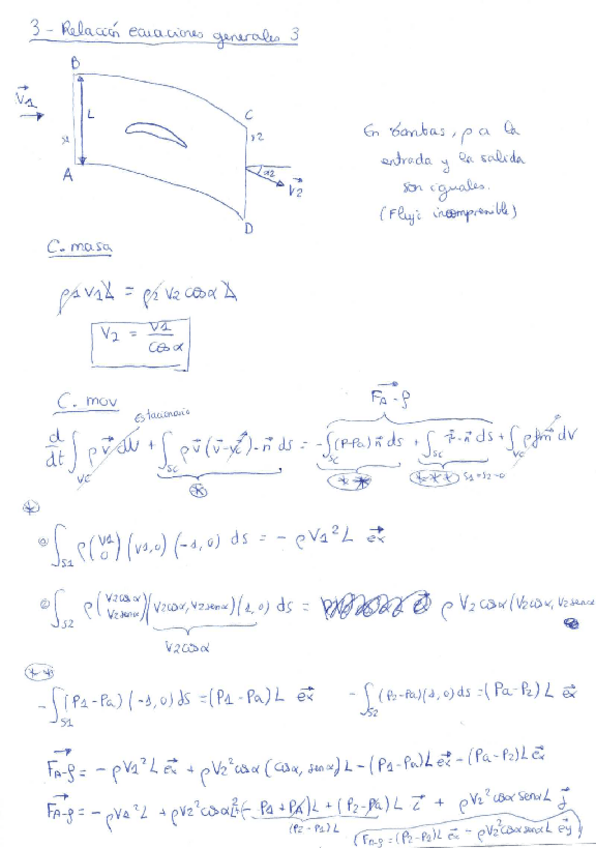 3 - Relación ecuaciones generales 3
B
V1
L
C
A
α2
V2
D
En bombas, ρ a la
entrada y la salida
son iguales.
(Flujo incompresible)
C. masa
ρ1 V1 L = ρ2 V2 cosα L
V2 = V1 / cosα
C. mov
Estacionario
FA-f
d/dt ∫VC ρ v dV + ∫SC ρ v (v - vc) · n ds = - ∫SC (P-Pa) n ds + ∫SC τ · n ds + ∫VC ρ fm dV
* ** *** S1+S2=0
*
∫S1 ρ (V1 0) (V1, 0) (-1, 0) ds = - ρ V1² L ex
∫S2 ρ (V2cosα V2senα) (V2cosα, V2senα) (1, 0) ds = ρ V2 cosα (V2cosα, V2senα
V2cosα
**
- ∫S1 (P1-Pa) (-1, 0) ds = (P1-Pa) L ex - ∫S2 (P2-Pa) (1, 0) ds = (Pa-P2) L ex
FA-f = - ρ V1² L ex + ρ V2² cosα (cosα, senα) L - (P1-Pa) L ex - (Pa-P2) L ex
FA-f = - ρ V1² L + ρ V2² cosα² L (- P1 + Pa) L + (P2 - Pa) L i + ρ V2² cosα senα L j
(P2-P1) L
(FA-f = (P2-P1) L ex - ρ V2² cosα senα L ey)